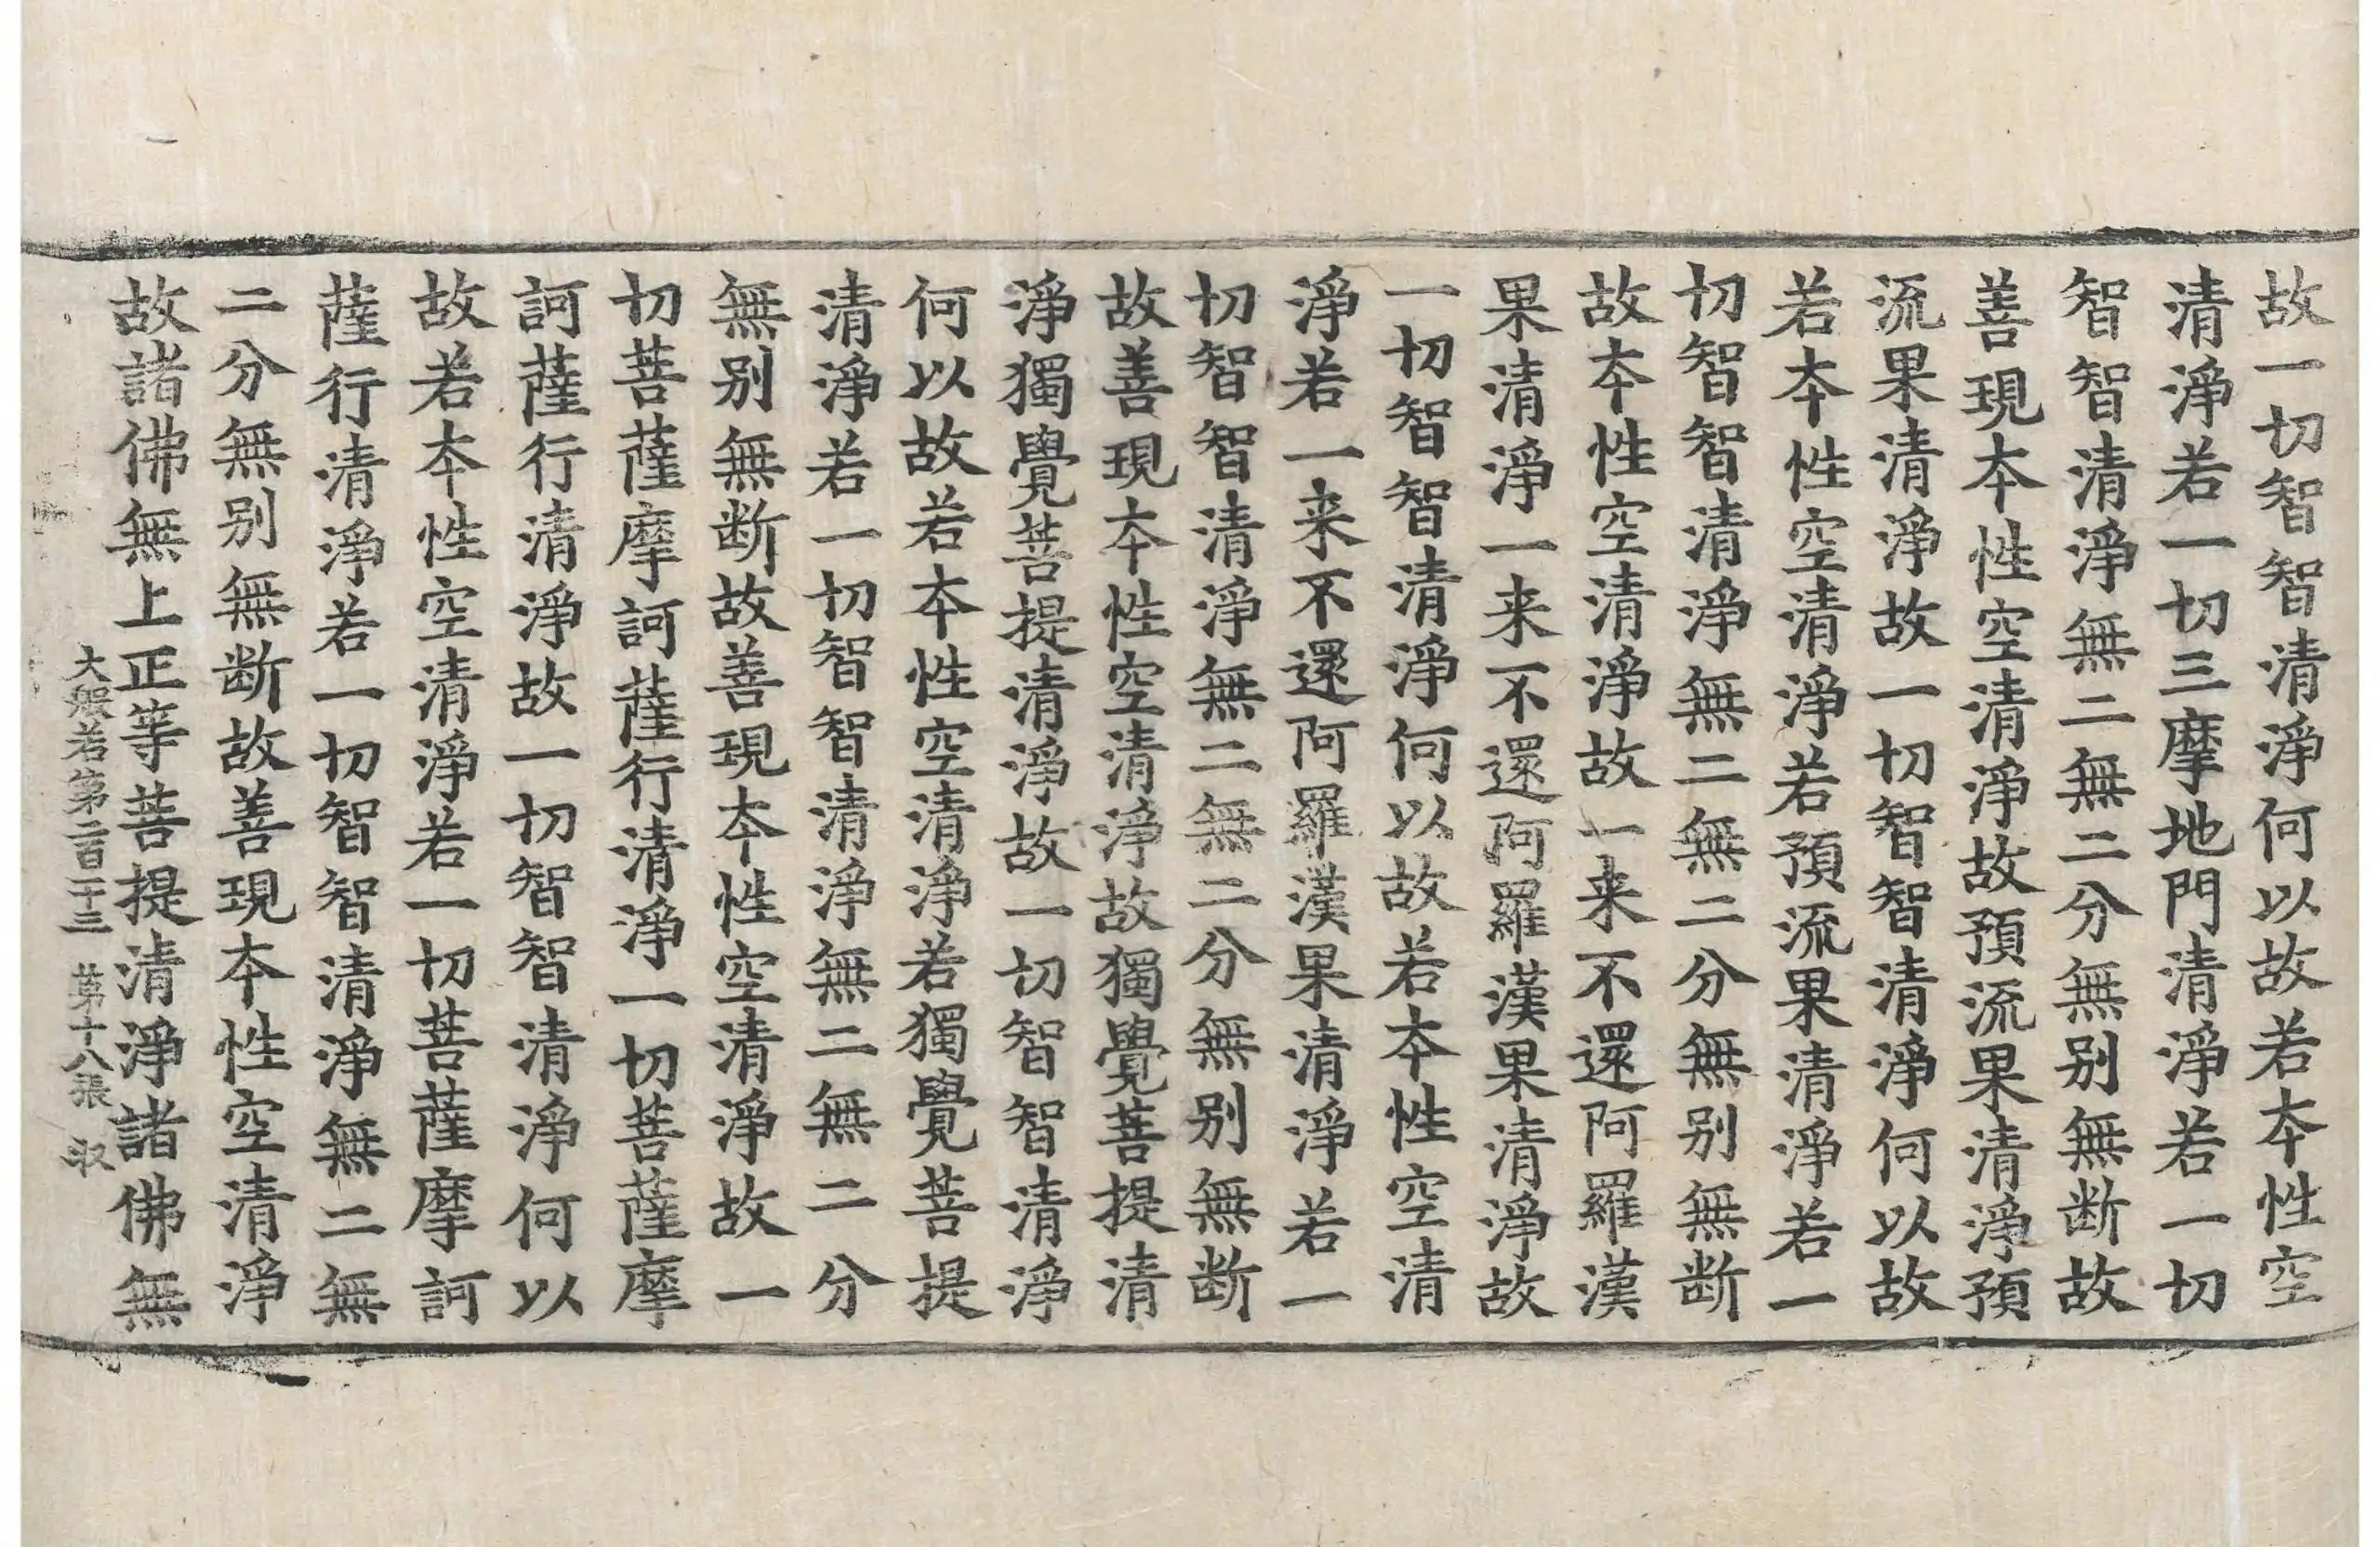 故一切智智清淨何以故若本性空
清淨若一切三摩地門清淨若一切
智智清淨無二無二分無别無断故
善現本性空清淨故預流果清淨預
流果清淨故一切智智清淨何以故
若本性空清淨若預流果清淨若一
切智智清淨無二無二分無别無断
故本性空清淨故一来不還阿羅漢
果清淨一来不還阿羅漢果清淨故
一切智智清淨何以故若本性空清
淨若一来不還阿羅漢果清淨若一
切智智清淨無二無二分無别無断
故善現本性空清淨故獨覺菩提清
淨獨覺菩提清淨故一切智智清淨
何以故若本性空清淨若獨覺菩提
清淨若一切智智清淨無二無二分
無别無断故善現本性空清淨故一
切菩薩摩訶薩行清淨一切菩薩摩
訶薩行清淨故一切智智清淨何以
故若本性空清淨若一切菩薩摩訶
薩行清淨若一切智智清淨無二無
二分無别無断故善現本性空清淨
故諸佛無上正等菩提清淨諸佛無
大般若第二百二十三 第十八張 㕝